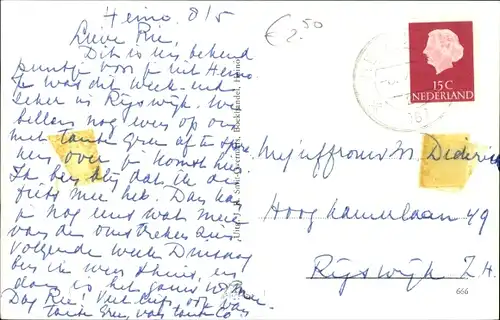 Heino. 8/5
Lieve Rie,
Dit is een bekend
puntje voor je uit Heino
Je was dit week-end
zeker in Rijswijk. We
bellen nog even op om
met tante Greu af te spre
ken over je komst hier.
Ik ben blij dat ik de
fiets mee heb. Dan kan
je nog eens wat meer
van de omstreken zien
Volgende week Dinsdag
ben ik weer thuis, en
dan is het gauw
Dag Rie! Veel liefs, ook van
tante Greu, van tante Co
€ 2.50
15C
NEDERLAND
Mejuffrouw M. Dederich
Hoog Kamerlaan 49
Rijswijk Z.H.
666